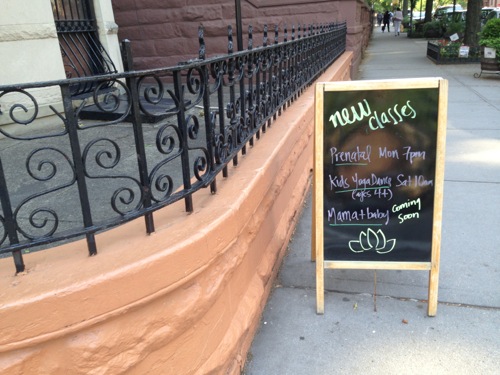 new classes
Prenatal Mon 7pm
Kids Yoga Dance Sat 10am
(ages 4+)
Mama + baby coming soon